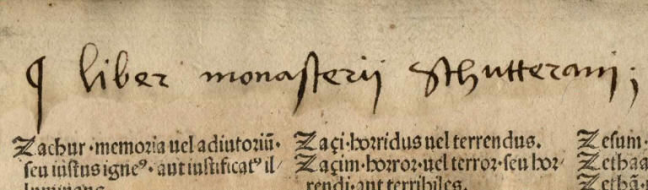 ¶ liber monasterij Schutterani;
Zachur·memoria uel adiutoriũ·
seu iustus igneꝰ· aut iustificatꝰ il/
Zaçi·horridus uel terrendus.
Zaçim·horror·uel terror·seu hor/
rendi·aut terribiles.
Zesum·